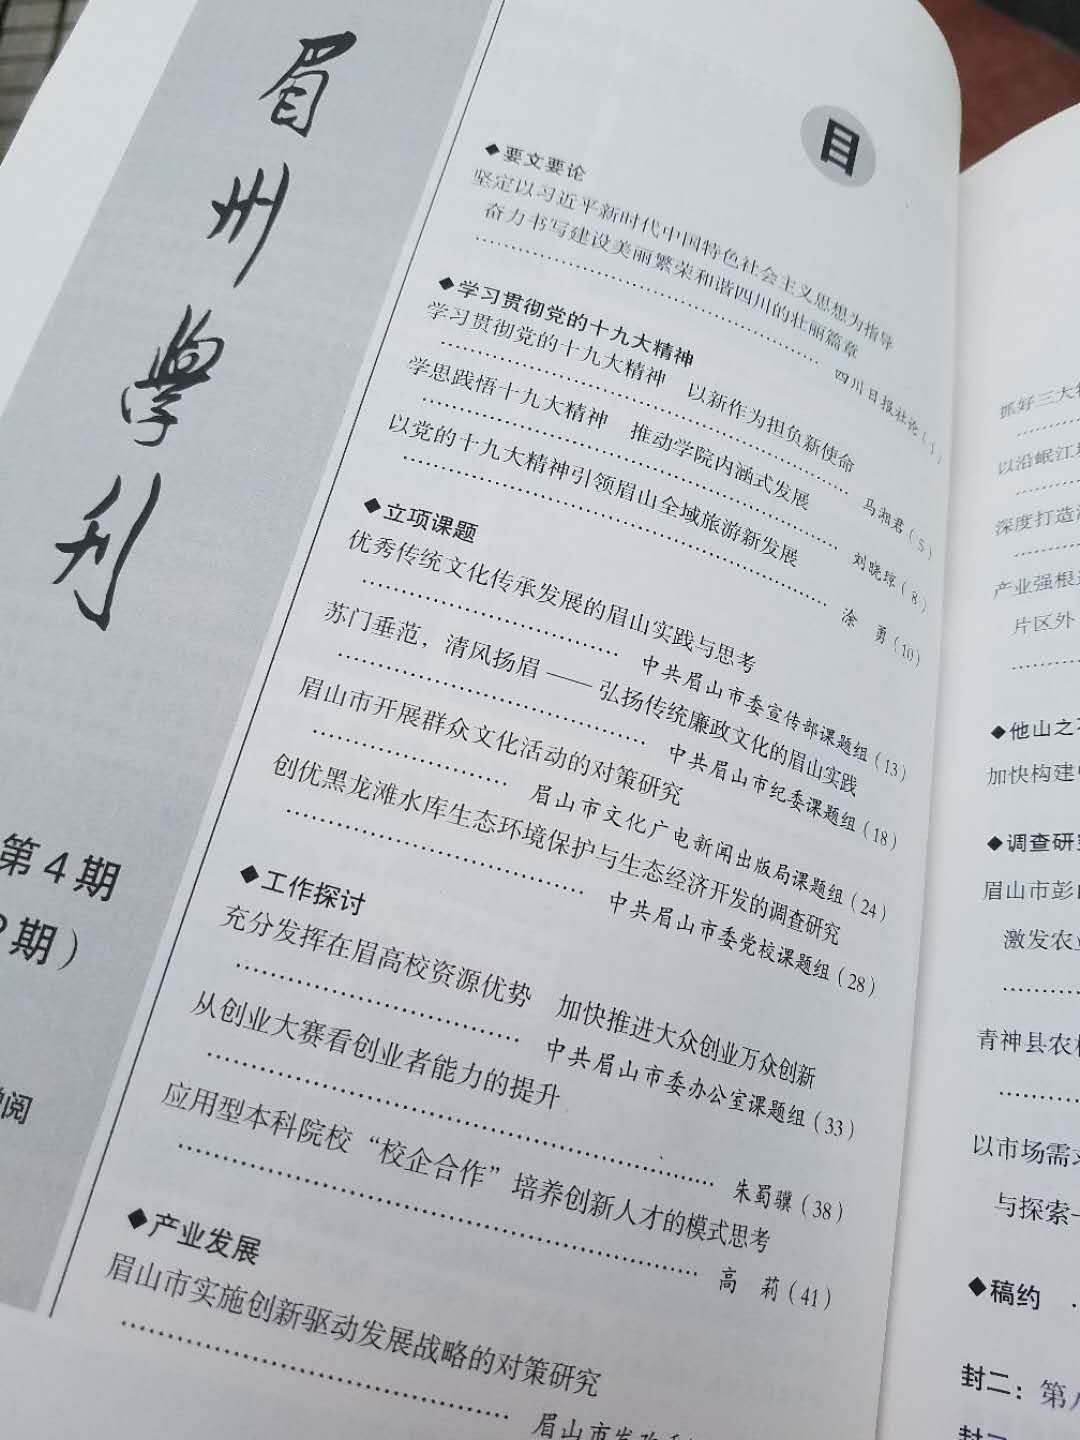 眉州學刊
第4期
期）
阅
目
◆要文要论
坚定以习近平新时代中国特色社会主义思想为指导
奋力书写建设美丽繁荣和谐四川的壮丽篇章
四川日报社论(1)
◆学习贯彻党的十九大精神
学习贯彻党的十九大精神 以新作为担负新使命
马湘君(5)
学思践悟十九大精神 推动学院内涵式发展
刘晓琼(8)
以党的十九大精神引领眉山全域旅游新发展
涂 勇(10)
◆立项课题
优秀传统文化传承发展的眉山实践与思考
中共眉山市委宣传部课题组(13)
苏门垂范，清风扬眉——弘扬传统廉政文化的眉山实践
中共眉山市纪委课题组(18)
眉山市开展群众文化活动的对策研究
眉山市文化广电新闻出版局课题组(24)
创优黑龙滩水库生态环境保护与生态经济开发的调查研究
中共眉山市委党校课题组(28)
◆工作探讨
充分发挥在眉高校资源优势 加快推进大众创业万众创新
中共眉山市委办公室课题组(33)
从创业大赛看创业者能力的提升
朱蜀骥(38)
应用型本科院校“校企合作”培养创新人才的模式思考
高 莉(41)
◆产业发展
眉山市实施创新驱动发展战略的对策研究
眉山市发改
抓好三大
以沿岷江
深度打造
产业强根
片区外
◆他山之
加快构建
◆调查研究
眉山市彭
激发农
青神县农
以市场需
与探索
◆稿约
封二：第